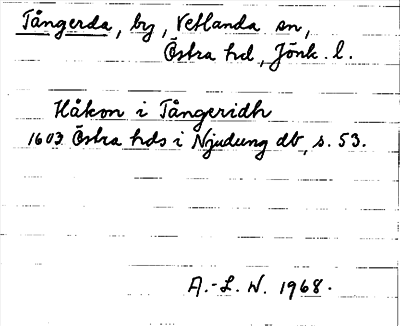 Tångerda, by, Vetlanda sn,
Östra hd, Jönk. l.
Håkon i Tångeridh
1603 Östra hds i Njudung db, s. 53.
A.-L. W. 1968.